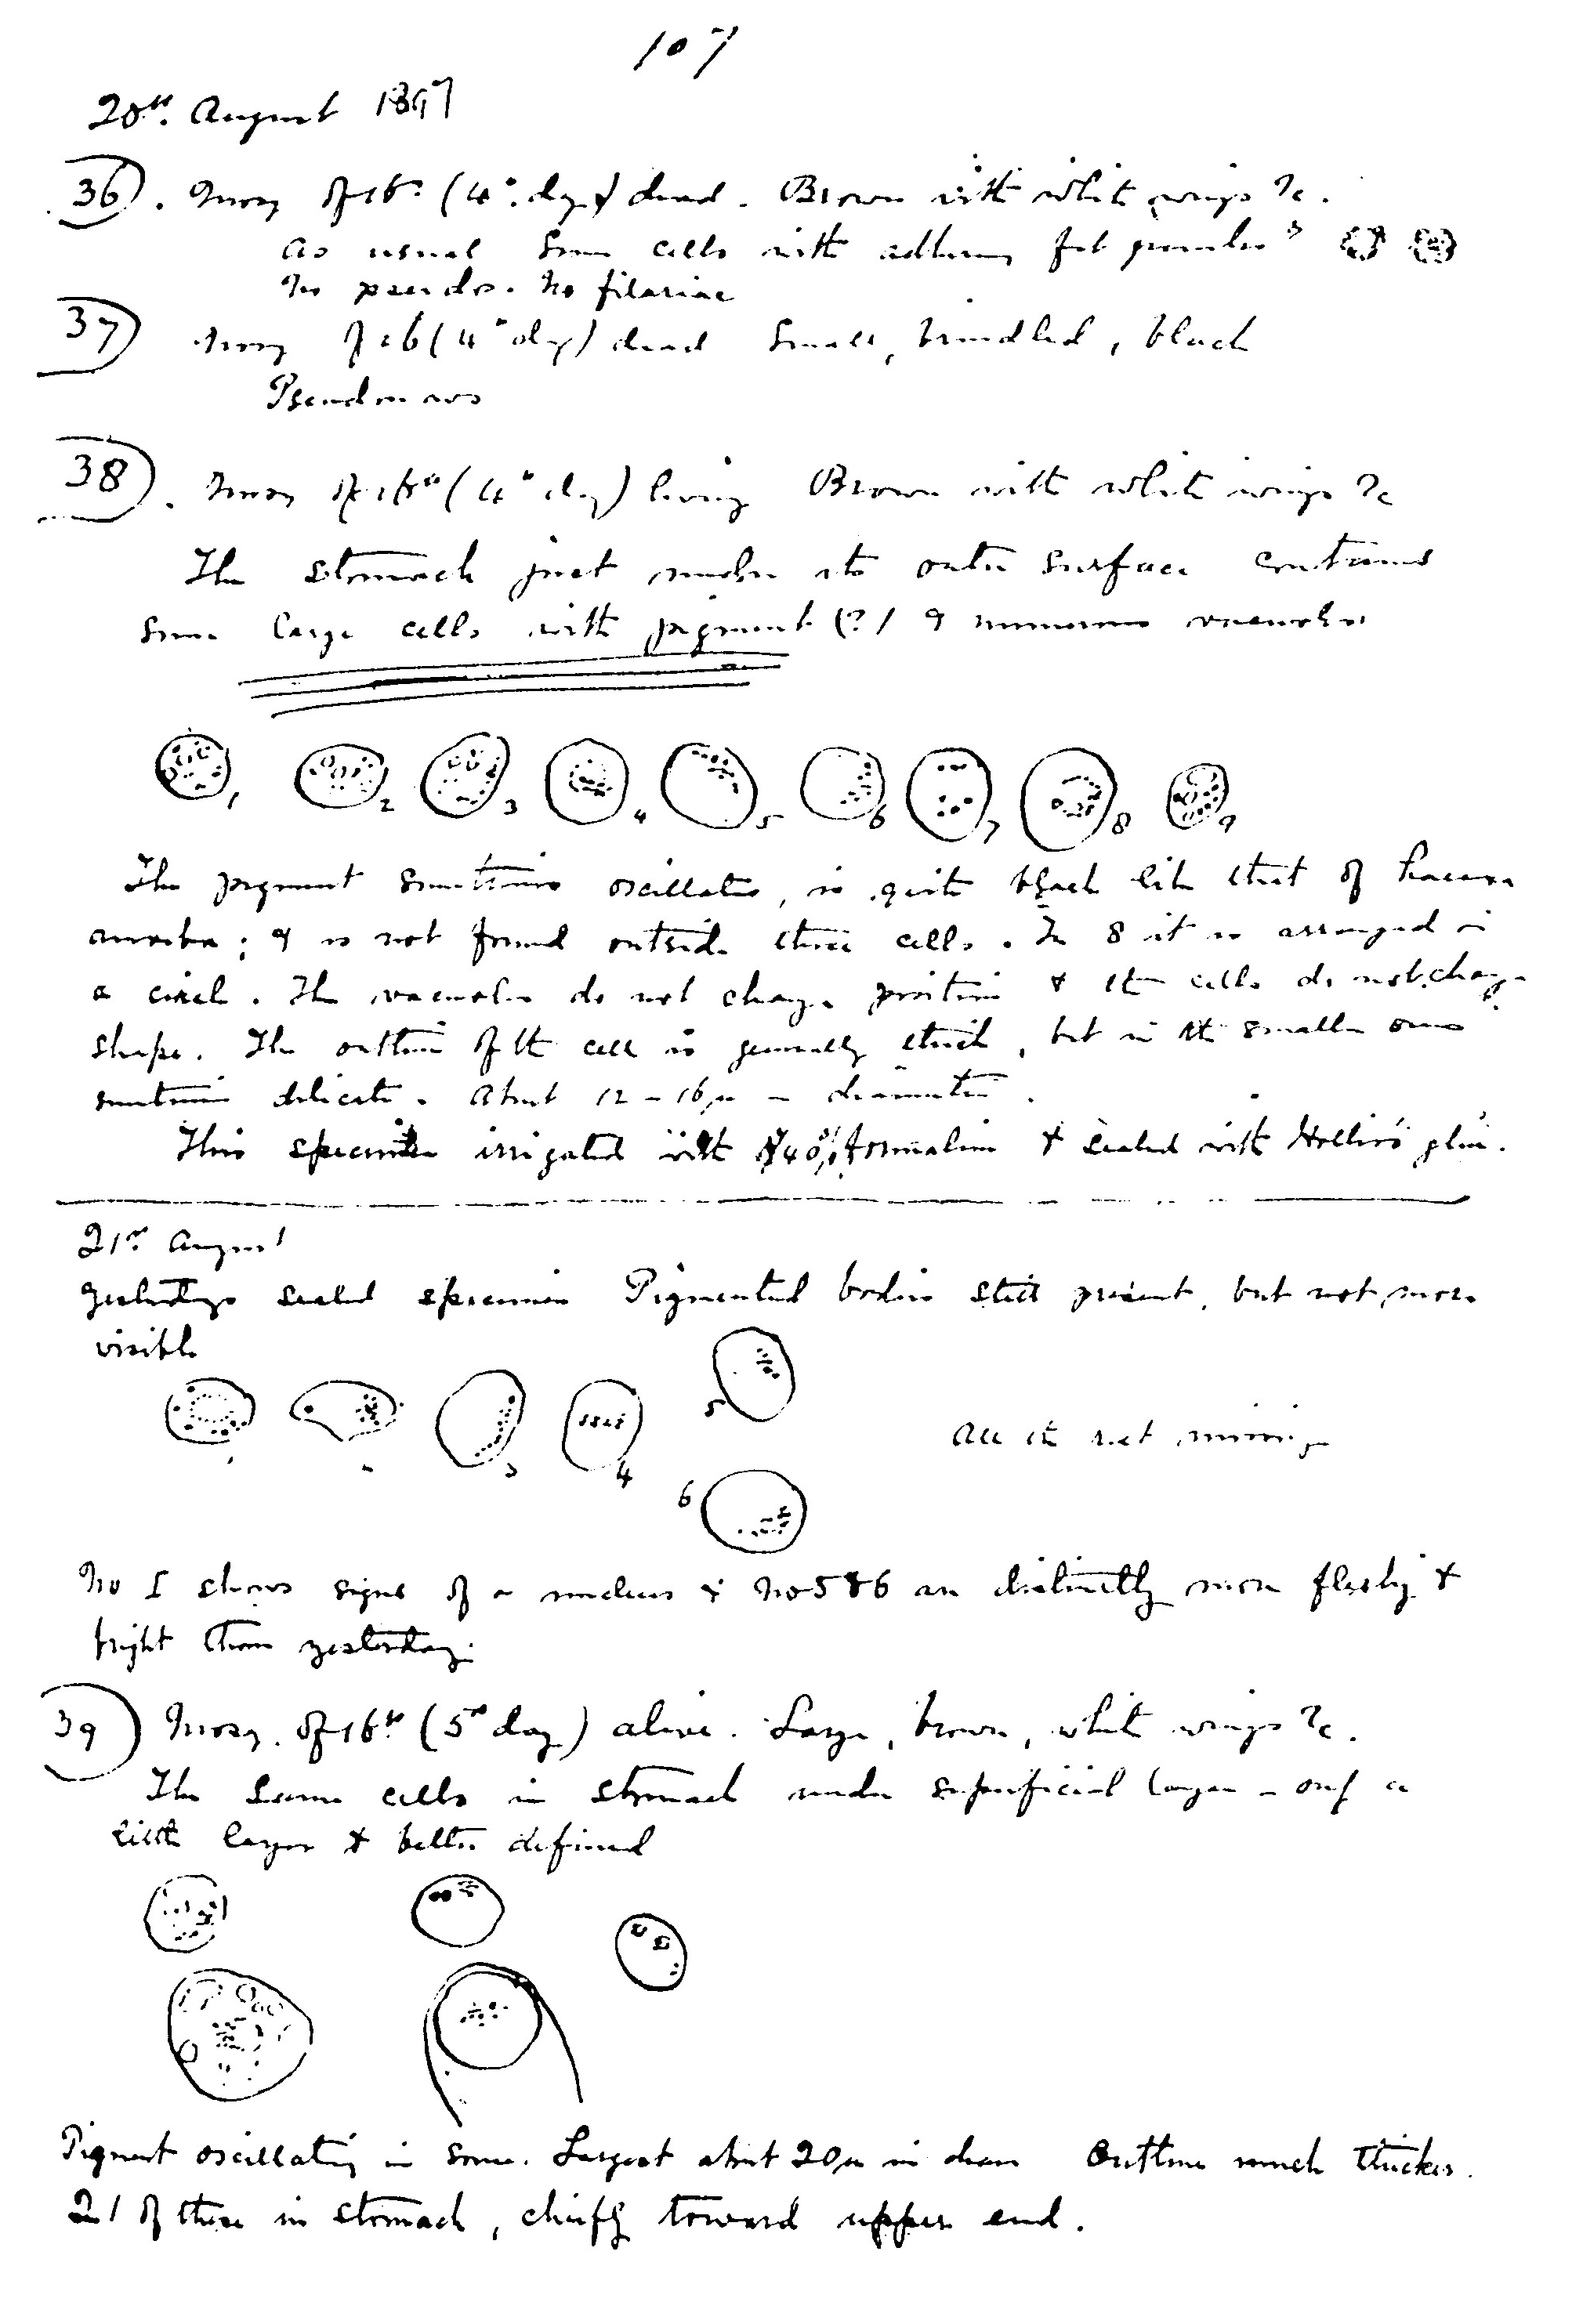 107
20th. August 1897
36). Mosq of 16th (4th day) dead. Brown with white wings &c.
As usual some cells with adhering fat granules
No pseudos. No filariae
37) Mosq of 16 (4th day) dead Small, brindled, black
38). Mosq of 16th (4th day) living Brown with white wings &c
The stomach just under its outer surface contains
some large cells with pigment (?) & numerous vacuoles
1 2 3 4 5 6 7 8 9
The pigment sometimes oscillates, is quite black like that of haemam
amoebae; & is not found outside these cells. In 8 it is arranged in
a circle. The vacuoles do not change position & the cells do not change
shape. The outline of the cell is generally thick, but in the smaller ones
sometimes delicate. About 12 - 16µ in diameter.
This specimen irrigated with 40% formalin & sealed with Hollis's glue.
21st August
Yesterdays sealed specimen Pigmented bodies still present, but not more
visible
1 2 3 4 5
All the rest missing
6
No 1 shows signs of a nucleus & No 5 & 6 are distinctly more fleshy &
bright than yesterday.
39) Mosq. of 16th (5th day) alive. Large, brown, white wings &c.
The same cells in stomach under superficial layer - only a
little larger & better defined
Pigment oscillating in some. Largest about 20µ in diam Outline much thicker.
21 of these in stomach, chiefly toward upper end.